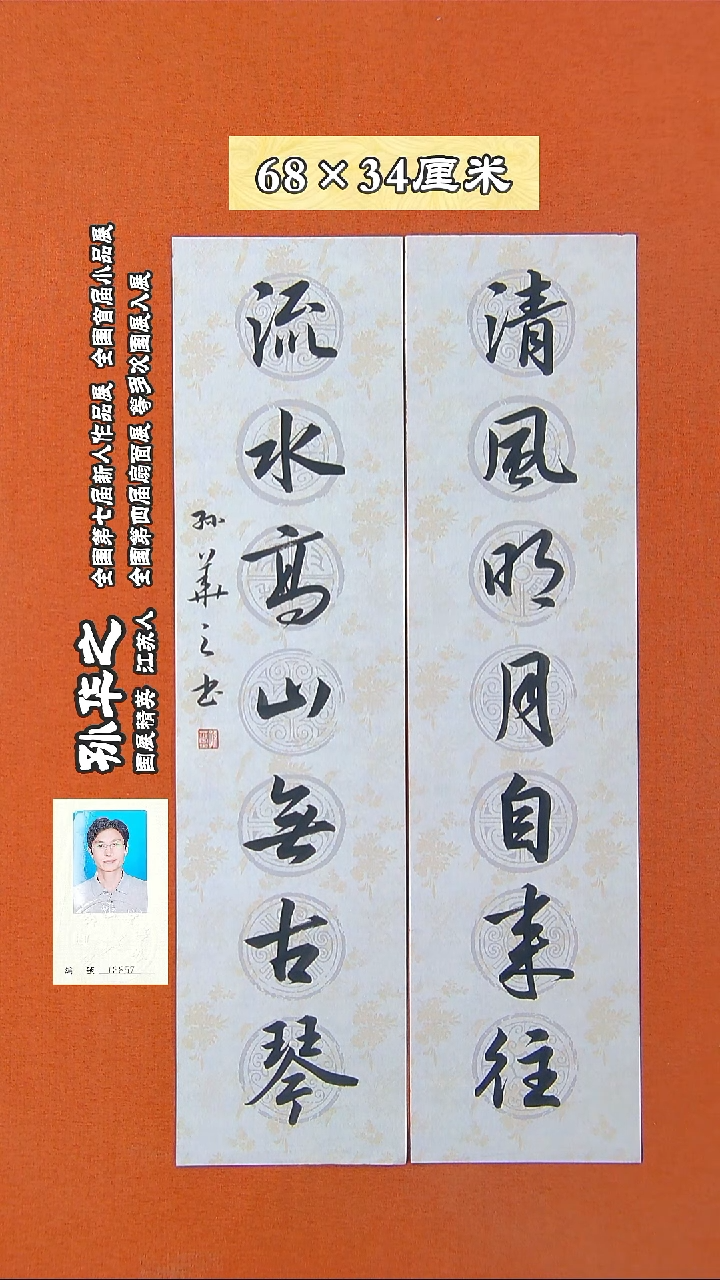 68×34厘米
清風明月自来往
流水高山無古琴
孙華之书
孙华之
国展精英 江苏人
全国第七届新人作品展 全国首届小品展
全国第四届扇面展 等多次国展入展
编 号